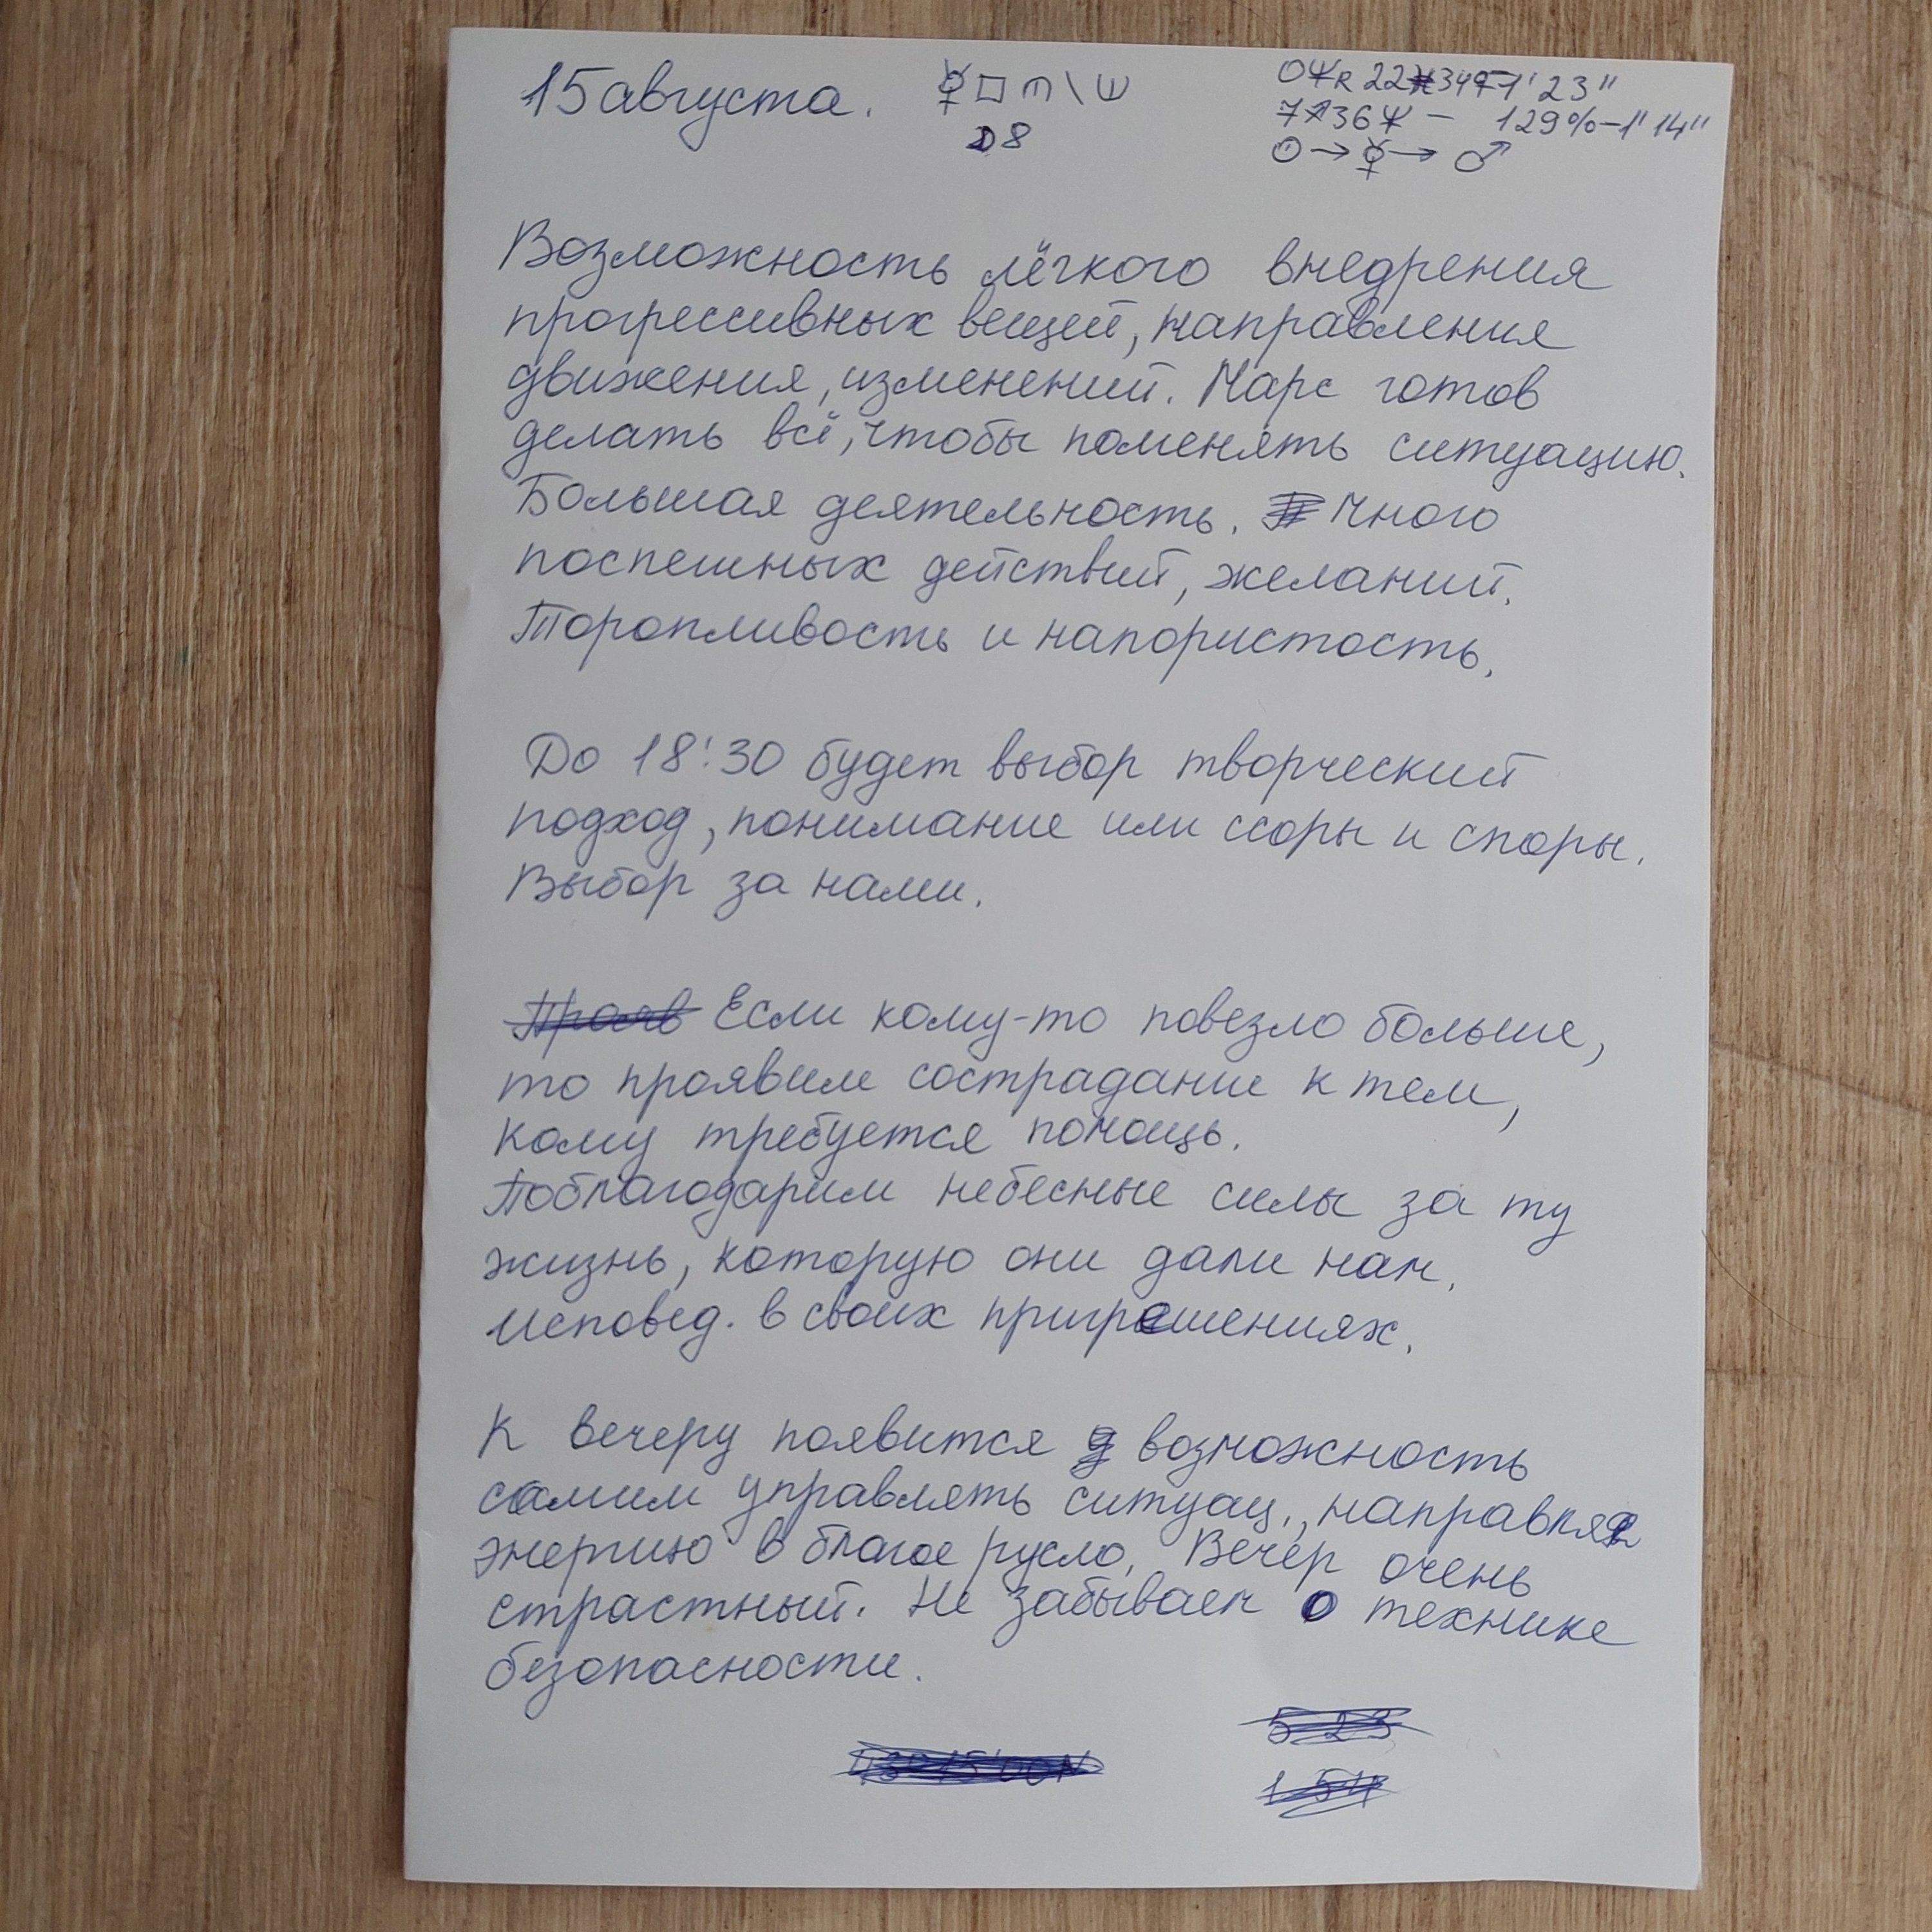 15 августа. ☿□ന\Ш
☽8
O♆R 22♓34 1'23"
7♐36 ♆ – 129% – 1'14"
☉→☿→♂
Возможность лёгкого внедрения
прогрессивных вещей, направления
движения, изменений. Марс готов
делать всё, чтобы поменять ситуацию.
Большая деятельность. Много
поспешных действий, желаний.
Торопливость и напористость.
До 18:30 будет выбор творческий
подход, понимание или ссоры и споры.
Выбор за нами.
Если кому-то повезло больше,
то проявим сострадание к тем,
кому требуется помощь.
Поблагодарим небесные силы за ту
жизнь, которую они дали нам.
Исповед. в своих пригрешениях.
К вечеру появится возможность
самим управлять ситуац., направляя
энергию в благое русло. Вечер очень
страстный. Не забываем о технике
безопасности.